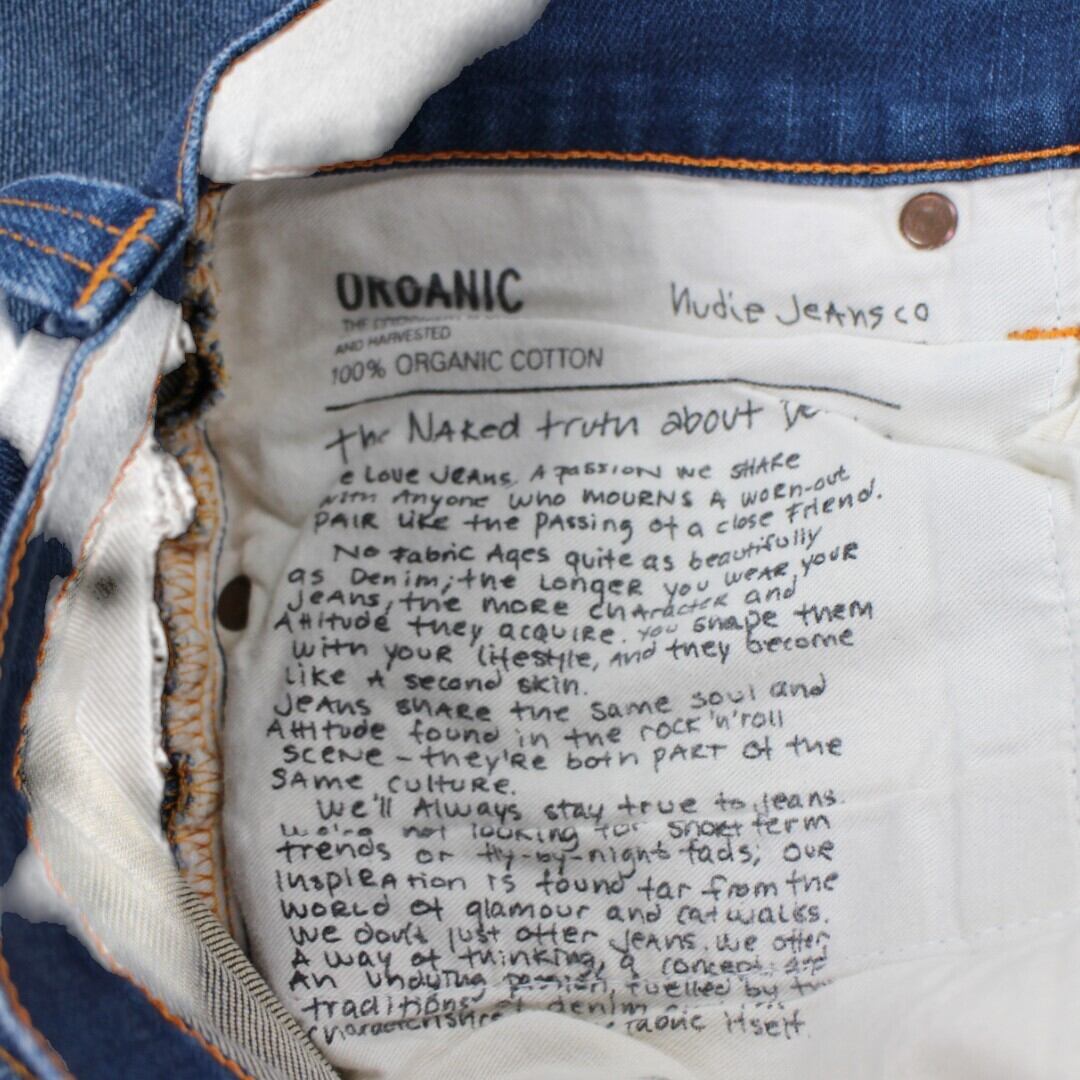 ORGANIC
Nudie Jeans co
AND HARVESTED
100% ORGANIC COTTON
the NAKed truth about
e Love JEANS. A PASSION WE SHARE
with Anyone WHO MOURNS A WORN-OUT
PAIR LIKE the PASSING of a close Friend.
No Fabric Ages quite as beautifully
as Denim; the LONGER you WEAR your
JEANS, the MORE CHARACTER and
Attitude they ACQUIRE. You SHAPE them
with your lifestyle, And they become
like A second skin.
JEANS SHARE the same soul and
Attitude found in the ROCK'n'roll
SCENE - they'RE both PART of the
SAME culture.
We'll Always stay true to Jeans.
We're not looking for short term
trends or fly-by-night fads; OUR
INSPIRATION IS found far from the
WORLD of glamour and catwalks.
We don't just offer JEANS. We offer
A way of thinking, a concept, and
An undying passion, fuelled by
traditions of denim
Characteristics fabric itself.